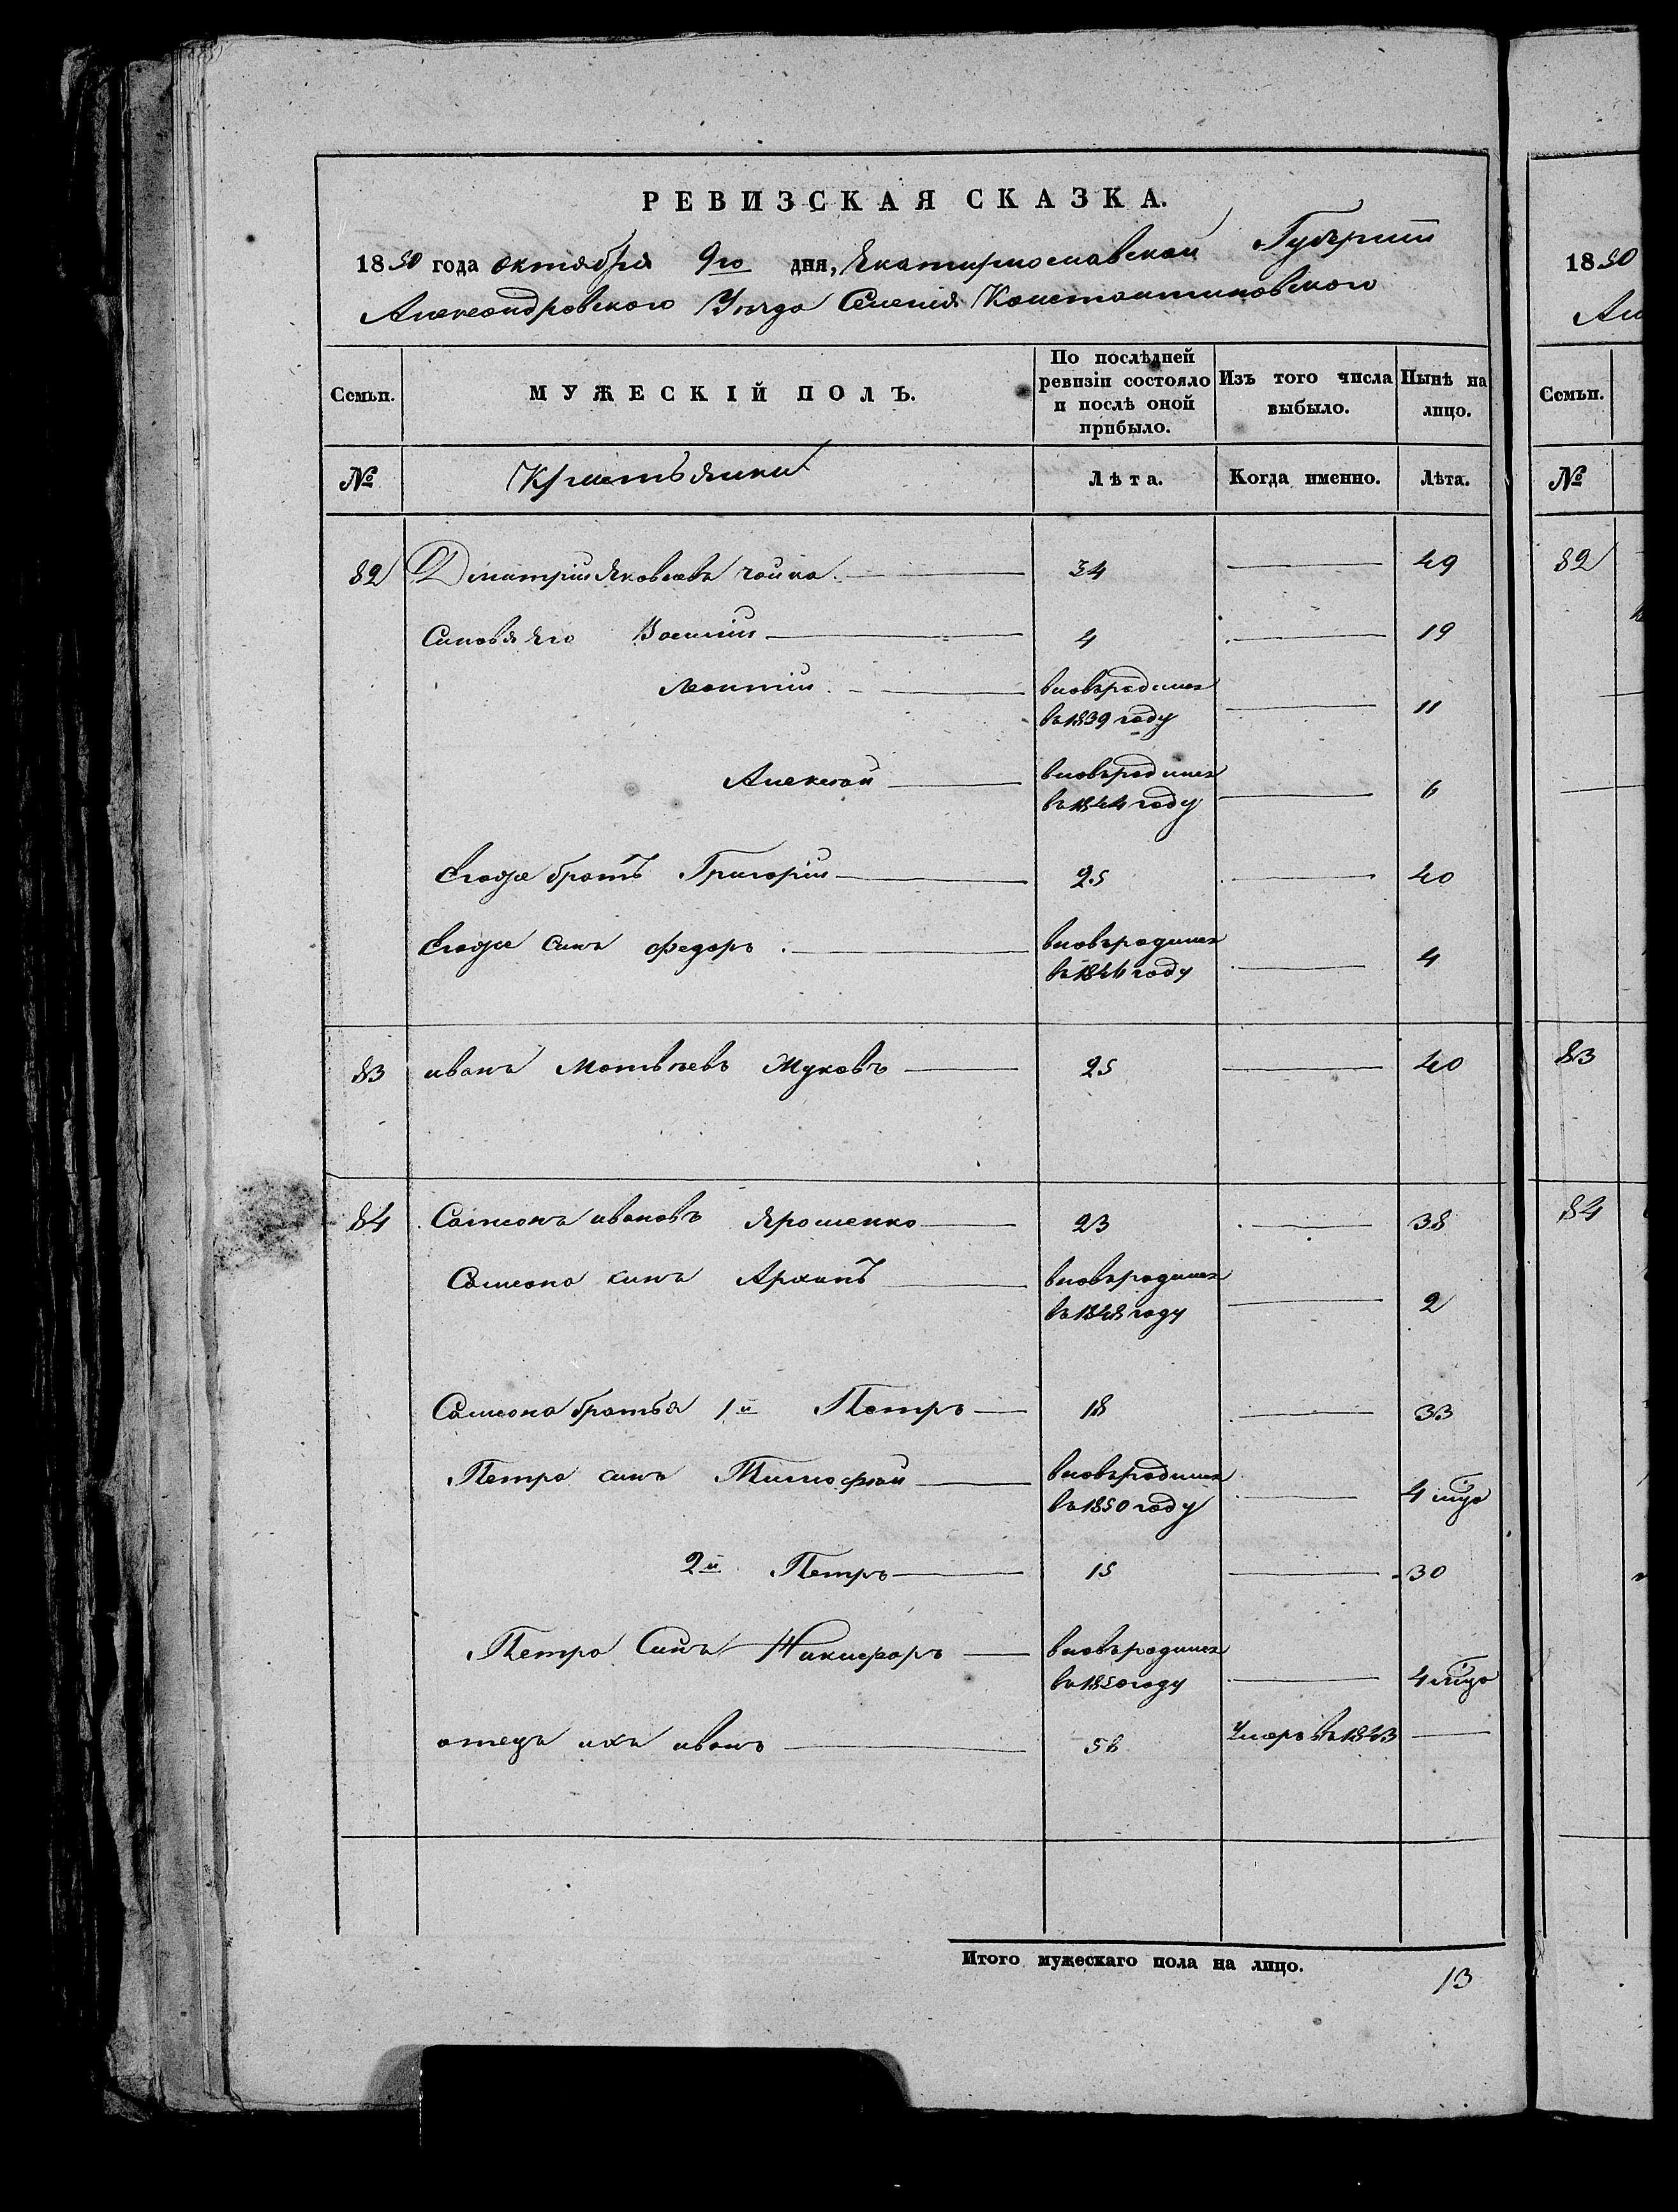 РЕВИЗСКАЯ СКАЗКА.
1850 года октября 9го дня, Екатеринославской Губернии
Александровского Уезда Селения Константиновского
Семьи.
МУЖЕСКІЙ ПОЛЪ.
По послѣдней ревизіи состояло и послѣ оной прибыло.
Изъ того числа выбыло.
Нынѣ на лицо.
№
Крестьянини
Лѣта.
Когда именно.
Лѣта.
82 Дмитрій Яковлевъ чайка. 34 49
Синовя Его Василій 4 19
Леонтій вновьродился въ 1839 году 11
Алексей вновьродился въ 1844 году 6
Егоже братъ Григорій 25 40
Егоже синъ Федоръ вновьродился въ 1846 году 4
83 иванъ Матвѣевъ Жуковъ 25 40
84 Самсонъ ивановъ Ярошенко 23 38
Самсона синъ Архипъ вновьродился въ 1848 году 2
Самсона братья 1й Петръ 18 33
Петра синъ Тимофей вновьродился въ 1850 году 4 мца
2й Петръ 15 30
Петра Синъ Никифоръ вновьродился въ 1850 году 4 мца
отецъ ихъ иванъ 56 Умеръ въ 1843
Итого мужескаго пола на лицо.
13
1850
Ал
Семьи.
№
82
83
84